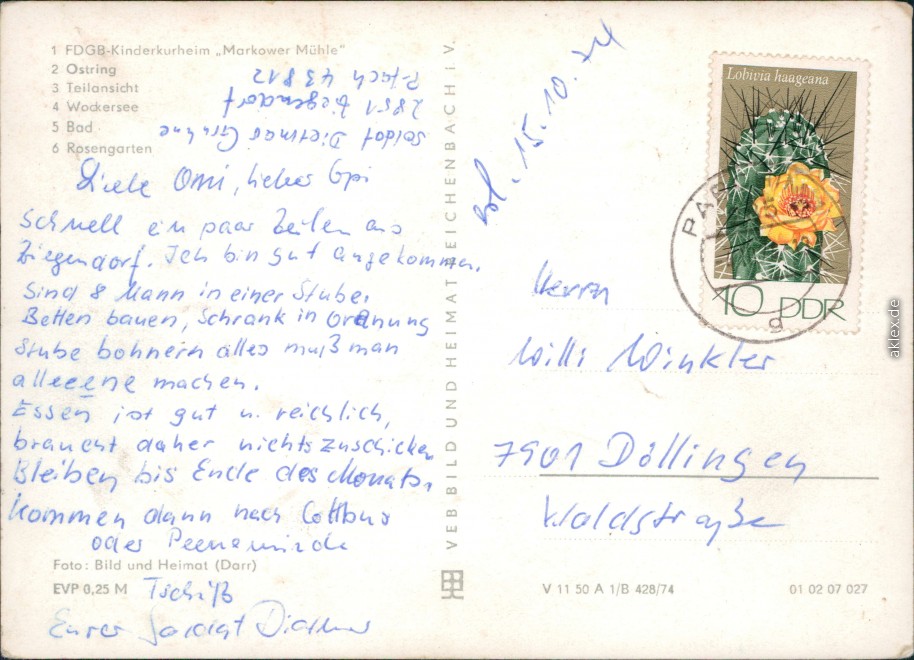 1 FDGB-Kinderkurheim „Markower Mühle"
2 Ostring
3 Teilansicht
4 Wockersee
5 Bad
6 Rosengarten
Soldat Dietmar Gruhne
2851 Ziegendorf
P-fach 43812
Liebe Omi, lieber Opi
Schnell ein paar Zeilen aus
Ziegendorf. Ich bin gut angekommen.
Sind 8 Mann in einer Stube.
Betten bauen, Schrank in Ordnung
Stube bohnern alles muß man
alleeene machen.
Essen ist gut u. reichlich,
braucht daher nichts zuschicken
Bleiben bis Ende des Monats,
kommen dann nach Cottbus
oder Peenemünde
Foto: Bild und Heimat (Darr)
EVP 0,25 M
Tschüß
Eurer Soldat Dietmar
VEB BILD UND HEIMAT REICHENBACH I V.
15.10.74
Lobivia haageana
10 DDR
PAR
g
Herrn
Willi Winkler
7901 Döllingen
Waldstraße
V 11 50 A 1/B 428/74
01 02 07 027
aklex.de